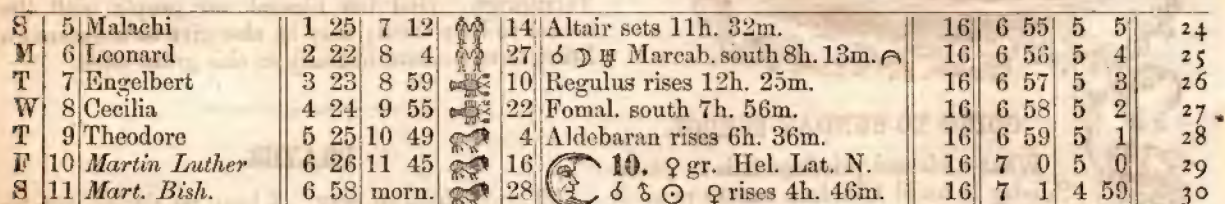 S 5 Malachi 1 25 7 12 14 Altair sets 11h. 32m. 16 6 55 5 5 24
M 6 Leonard 2 22 8 4 27 ☌ ☽ ♅ Marcab. south 8h. 13m. 16 6 56 5 4 25
T 7 Engelbert 3 23 8 59 10 Regulus rises 12h. 25m. 16 6 57 5 3 26
W 8 Cecilia 4 24 9 55 22 Fomal. south 7h. 56m. 16 6 58 5 2 27
T 9 Theodore 5 25 10 49 4 Aldebaran rises 6h. 36m. 16 6 59 5 1 28
F 10 Martin Luther 6 26 11 45 16 10. ♀ gr. Hel. Lat. N. 16 7 0 5 0 29
S 11 Mart. Bish. 6 58 morn. 28 ☌ ♄ ☉ ♀ rises 4h. 46m. 16 7 1 4 59 30